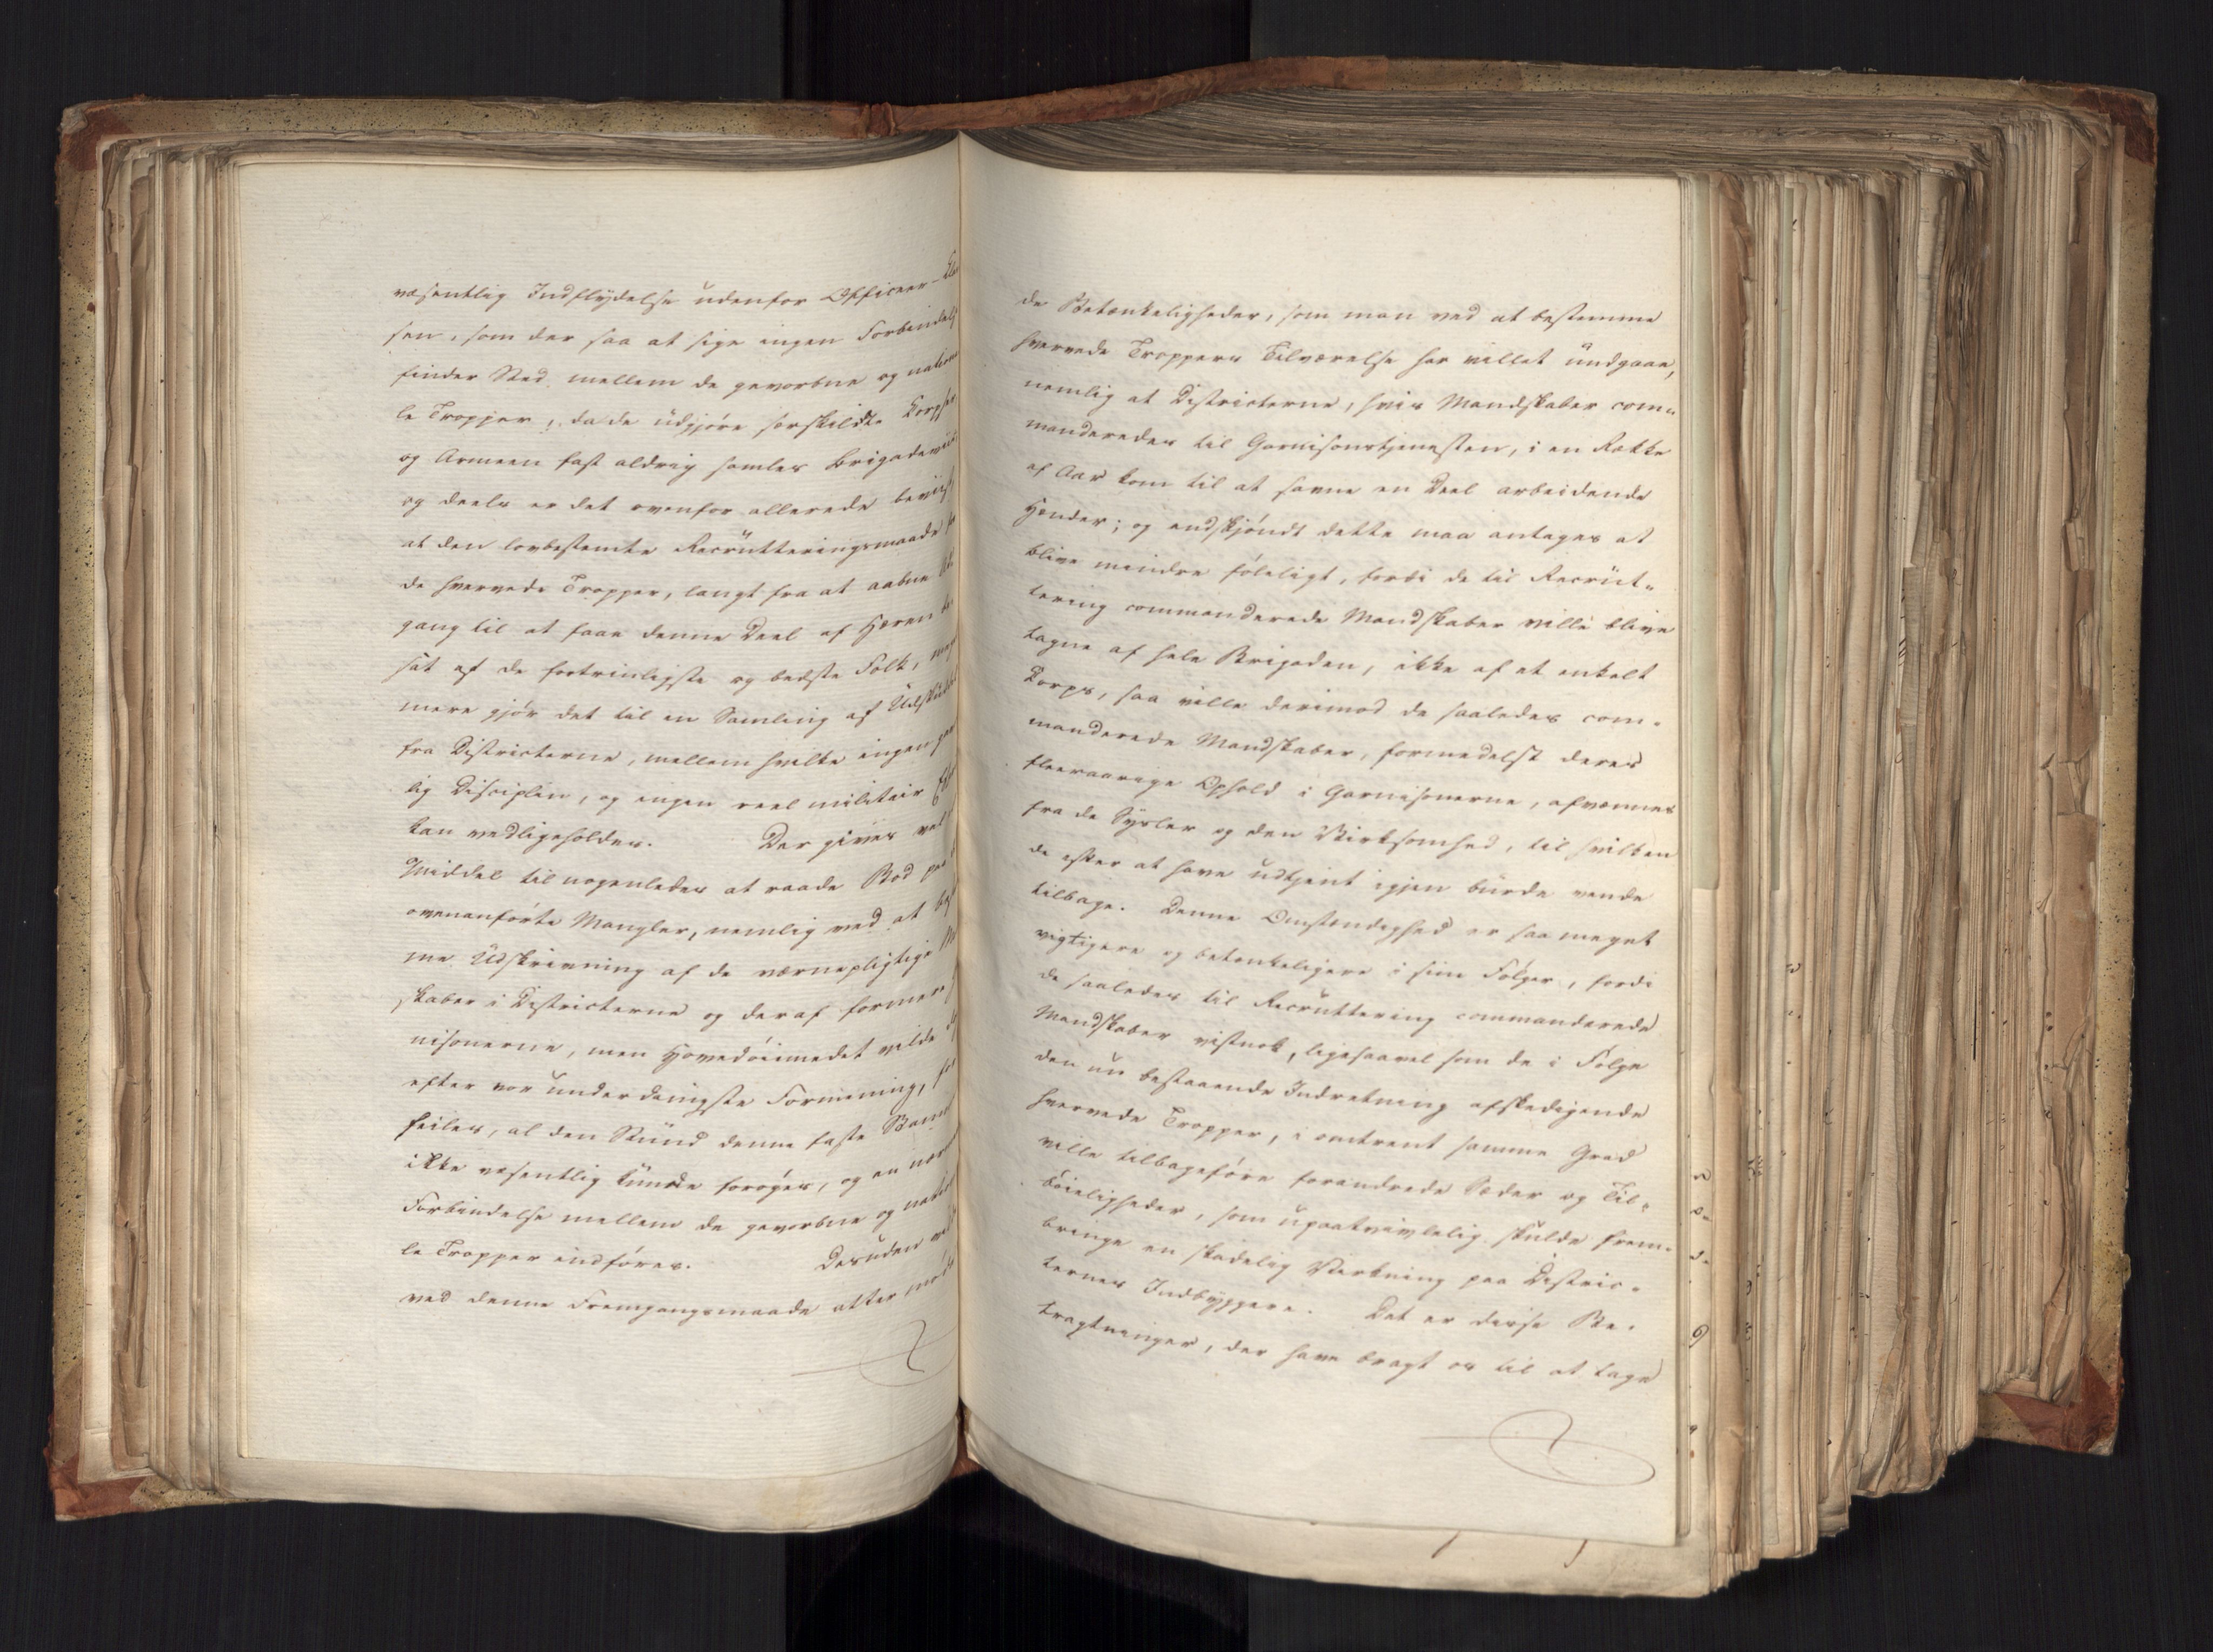 væsentlig Indflydelse udenfor Officeer-Clas
sen, som der saa at sige ingen Forbindels
finder Sted mellem de gevorbne og nationa
le Tropper, da de udgjøre serskildte Corpser
og Armeen fast aldrig samles brigadeviis
og deels er det ovenfor allerede beviist,
at den lovbestemte Recrutteringsmaade for
de hvervede Tropper, langt fra at aabne
gang til at faae denne Deel af Hæren be
sat af de fortrinligste og bedste Folk, meget
mere gjør det til en Samling af Udskuddet
fra Districterne, mellem hvilke ingen
lig Disciplin, og ingen reel militair
kan vedligeholdes. Der gives vel
Middel til nogenledes at raade Bod paa
ovenanførte Mangler, nemlig ved at
me Udskrivning af de værnepligtige
skaber i Districterne og deraf formere
nisonerne, men Hovedøiemedet vilde
efter vor underdanigste Formening,
feiles, al den Stund denne faste Stamme
ikke væsentlig kunde forøges, og en nær
Forbindelse mellem de gevorbne og nation
le Tropper indføres. Desuden
ved denne Fremgangsmaade atter møde
de Betænkeligheder, som man ved at bestemme
hvervede Troppers Tilværelse har villet undgaae,
nemlig at Districterne, hvis Mandskaber com-
manderedes til Garnisonstjenesten, i en Række
af Aar kom til at savne en Deel arbeidende
Hænder; og endskjøndt dette maa antages at
blive mindre føleligt, fordi de til Recrut-
tering commanderede Mandskaber ville blive
tagne af hele Brigaden, ikke af et enkelt
Corps, saa ville derimod de saaledes com-
manderede Mandskaber, formedelst deres
fleeraarige Ophold i Garnisonerne, afvænnes
fra de Sysler og den Virksomhed, til hvilken
de efter at have udtjent igjen burde vende
tilbage. Denne Omstændighed er saa meget
vigtigere og betænkeligere i sine Følger, fordi
de saaledes til Recruttering commanderede
Mandskaber vistnok, ligesaavel som de i Følge
den nu bestaaende Indretning afskedigende
hvervede Tropper, i omtrent samme Grad
ville tilbageføre forandrede Sæder og Til-
bøieligheder, som upaatvivlelig skulde frem-
bringe en skadelig Virkning paa Distric-
ternes Indbyggere. Det er disse Be-
tragtninger, der have bragt os til at tage